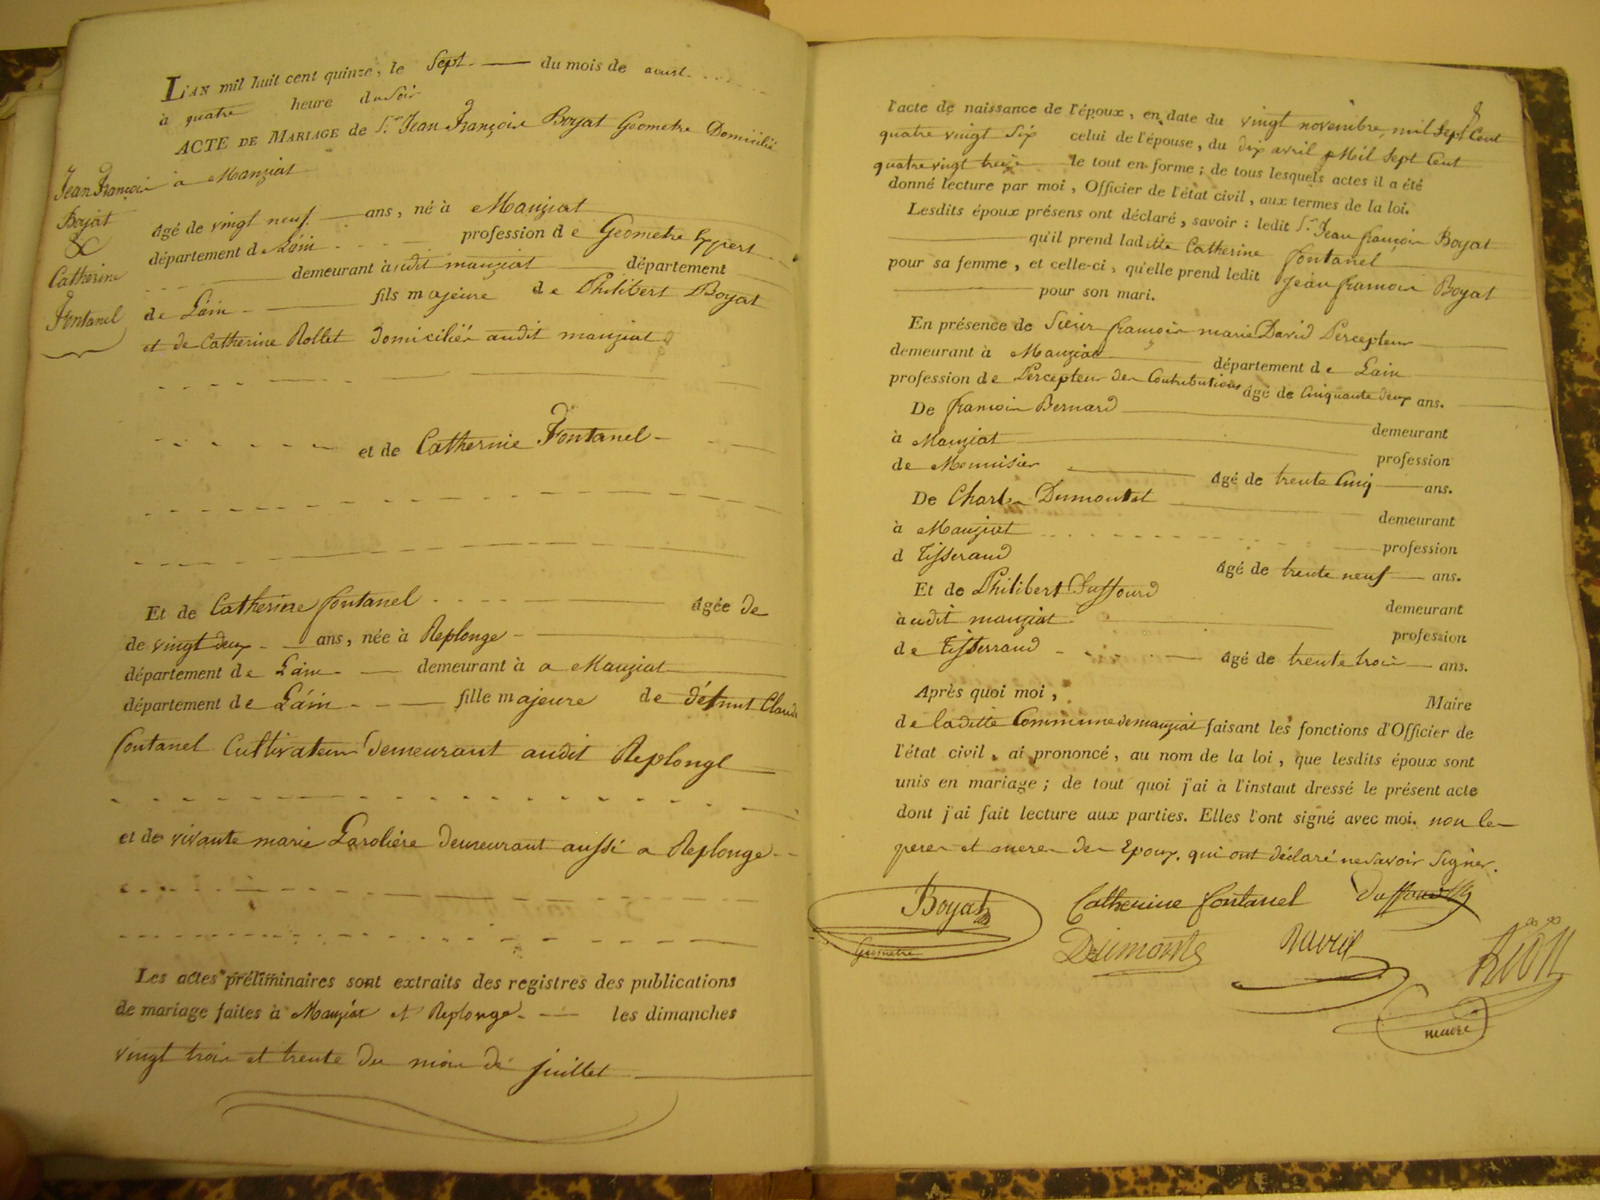 L'AN mil huit cent quinze, le Sept du mois de aoust
à quatre heure du soir
ACTE DE MARIAGE de Sr. Jean François Boyat Geometre Domicilié
à Manziat
Jean François
Boyat
&
Catherine
Fontanel
âgé de vingt neuf ans, né à Manziat
département de Lain profession de Geometre Expert
demeurant audit manziat département
de Lain fils majeure de Philibert Boyat
et de Catherine Rollet domiciliés audit manziat
et de Catherine Fontanel
Et de Catherine fontanel âgée de
de vingt deux ans, née à Replonge
département de Lain demeurant à a Manziat
département de Lain fille majeure de défunt Claude
fontanel Cultivateur demeurant audit Replonge
et de vivante marie Laroliére demeurant aussi a Replonge
Les actes préliminaires sont extraits des registres des publications
de mariage faites à Manziat et Replonge les dimanches
vingt trois et trente du mois de juillet
l'acte de naissance de l'époux, en date du vingt novembre mil Sept Cent
quatre vingt Six celui de l'épouse, du dix avril Mil Sept Cent
quatre vingt treize le tout en forme ; de tous lesquels actes il a été
donné lecture par moi, Officier de l'état civil, aux termes de la loi.
Lesdits époux présens ont déclaré, savoir : ledit Sr. Jean françois Boyat
qu'il prend ladite Catherine fontanel
pour sa femme, et celle-ci, qu'elle prend ledit Jean françois Boyat
pour son mari.
En présence de Sieur françois marie David Percepteur
demeurant à Manziat département de Lain
profession de Percepteur des Contributions âgé de Cinquante deux ans.
De françois Bernard demeurant
à Manziat profession
de Menuisier âgé de trente Cinq ans.
De Charles Dumontet demeurant
à Manziat profession
d Tisserand âgé de trente neuf ans.
Et de Philibert Duffourd demeurant
audit manziat profession
de Tisserrand âgé de trente trois ans.
Après quoi moi, Maire
de laditte Commune de manziat faisant les fonctions d'Officier de
l'état civil, ai prononcé, au nom de la loi, que lesdits époux sont
unis en mariage ; de tout quoi j'ai à l'instant dressé le présent acte
dont j'ai fait lecture aux parties. Elles l'ont signé avec moi. non les
peres et meres des Epoux, qui ont déclaré ne savoir signer.
Boyat Catherine fontanel
Geometre
maire